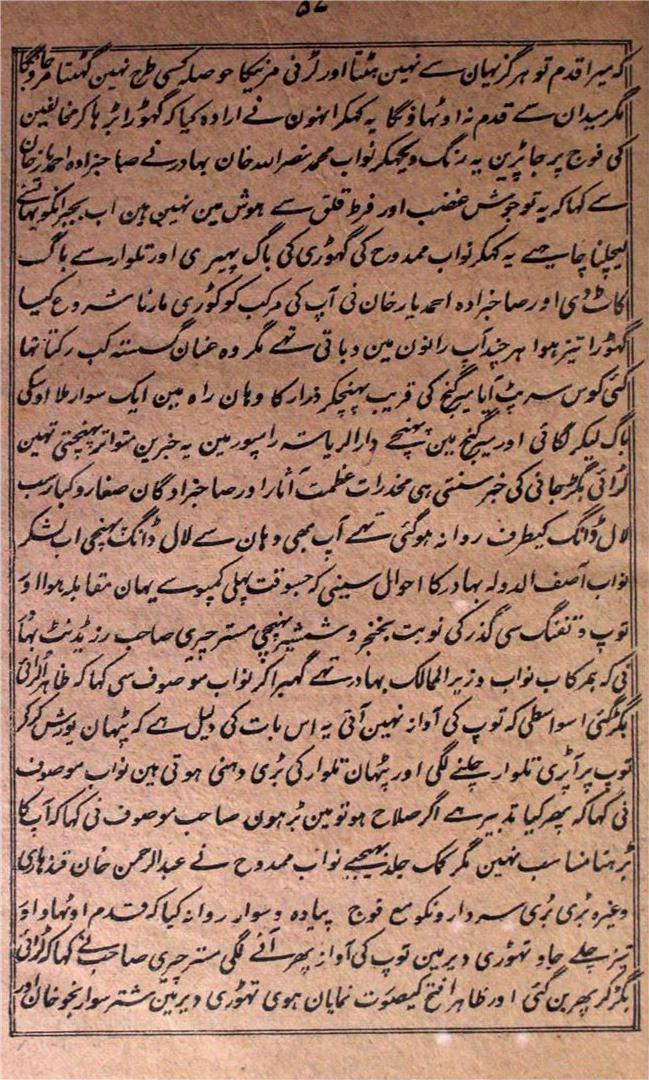 ۵۷
کہ میرا قدم تو ہرگز یہان سے نہین ہٹتا اور لڑنی مرنیکا حوصلہ کسی طرح نہین گھٹتا مرد جانیگا
مگر میدان سے قدم نہ اوٹہاؤنگا یہ کہکر انہون نے ارادہ کیا کہ گھوڑا بڑہا کر مخالفین
کی فوج پر جا پڑین یہ رنگ دیکھکر نواب محمد نصر اللہ خان بہادر نے صاحبزادہ احمد یار خان
سے کہا کہ یہ تو جوش غضب اور فرط قلق سے ہوش مین نہین ہین اب بجبر انکو یہانسے
لیچلنا چاہیے یہ کہکر نواب ممدوح کی گہوڑی کی باگ پہیری اور تلوار سے باگ
کاٹ دی اور صاحبزادہ احمد یار خان نی آپ کی مرکب کو کوڑی مارنا شروع کیا
گھوڑا تیز ہوا ہر چند آپ رانون مین دباتی تھے مگر وہ عنان گسستہ کب رکتا تہا
کئی کوس سرپٹ آیا میر گنج کی قریب پہنچکر ذرا رکا وہان راہ مین ایک سوار ملا اوسکی
باگ لیکر لگائی اور میر گنج مین پہنچے دارالریاستہ رامپور مین یہ خبرین متواتر پہنچتی تہین
لڑائی بگڑ جانی کی خبر سنتی ہی مخدرات عظمت آثار اور صاحبزادگان صغار و کبار سب
لال ڈانگ کیطرف روانہ ہوگئی تھے آپ بھی وہان سے لال ڈانگ پہنچی اب لشکر
نواب آصف الدولہ بہادر کا احوال سنیی کہ جسوقت پہلی کمپو سے یہان مقابلہ ہوا اور
توپ و تفنگ سی گذر کی نوبت بخنجر و شمشیر پہنچی مستر چری صاحب رزیڈنٹ بہادر
نی کہ ہمرکاب نواب وزیر الممالک بہادر تھے گھبرا کر نواب موصوف سی کہا کہ ظاہرا لڑائی
بگڑ گئی اسواسطی کہ توپ کی آواز نہین آتی یہ اس بات کی دلیل ہے کہ پٹہان یورش کرکر
توپ پر آپڑی تلوار چلنے لگی اور پٹہان تلوار کی بڑی دہنی ہوتی ہین نواب موصوف
نی کہا کہ پھر کیا تدبیر ہے اگر صلاح ہو تو مین بڑہون صاحب موصوف نی کہا کہ آپ کا
بڑہنا مناسب نہین مگر کمک جلد بہیجیے نواب ممدوح نے عبدالرحمن خان قندہاری
وغیرہ بڑی بڑی سردارونکو مع فوج پیادہ و سوار روانہ کیا کہ قدم اوٹہاؤ اور
تیز چلے جاؤ تہوڑی دیر مین توپ کی آواز پھر آنے لگی مستر چری صاحب نے کہا کہ لڑائی
بگڑ کر پھر بن گئی اور ظاہرا فتح کیصورت نمایان ہوی تہوڑی دیر مین شتر سوار نجو خان اور